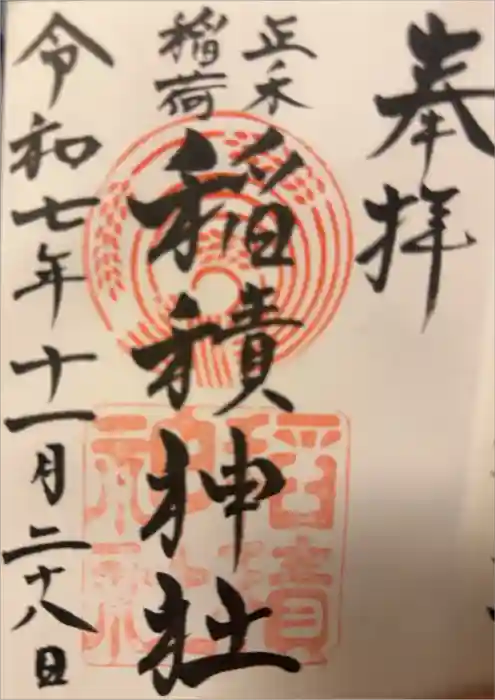 奉拝
正木
稲荷
稲積神社
令和七年十一月二十八日
稲積
神社